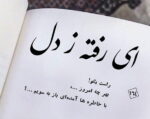 ای رفته ز دل
راست بگو!
بهر چه امروز ...
با خاطره ها آمده‌ای باز به سویم ...؟